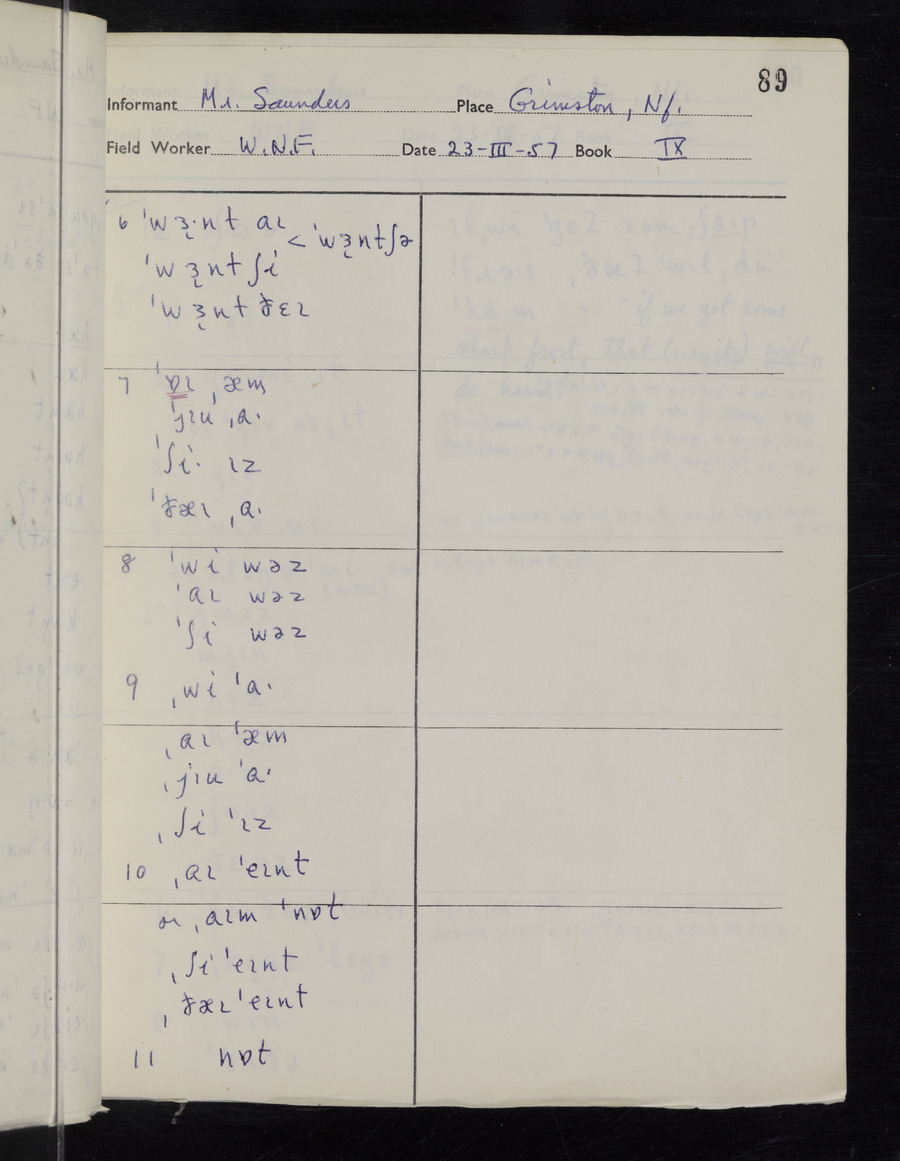 89
Informant Mr. Saunders Place Grimston, Nf.
Field Worker W.N.F. Date 23-III-57 Book IX
6 ˈwɜ̨·nt aɪ < ˈwɜ̨ntʃə
ˈwɜ̨nt ʃi
ˈwɜ̨nt ðɛɪ
7 ˈɒɪ ˌæm
ˈjɪu ˌa·
ˈʃi· ɪz
ˈðæɪ ˌa·
8 ˈwi wəz
ˈaɪ wəz
ˈʃi wəz
9 ˌwi ˈa·
ˌaɪ ˈæm
ˌjɪu ˈa·
ˌʃi ˈɪz
10 ˌaɪ ˈeɪnt
or ˌaɪm ˈnɒt
ˌʃi ˈeɪnt
ˌðæɪ ˈeɪnt
11 nɒt